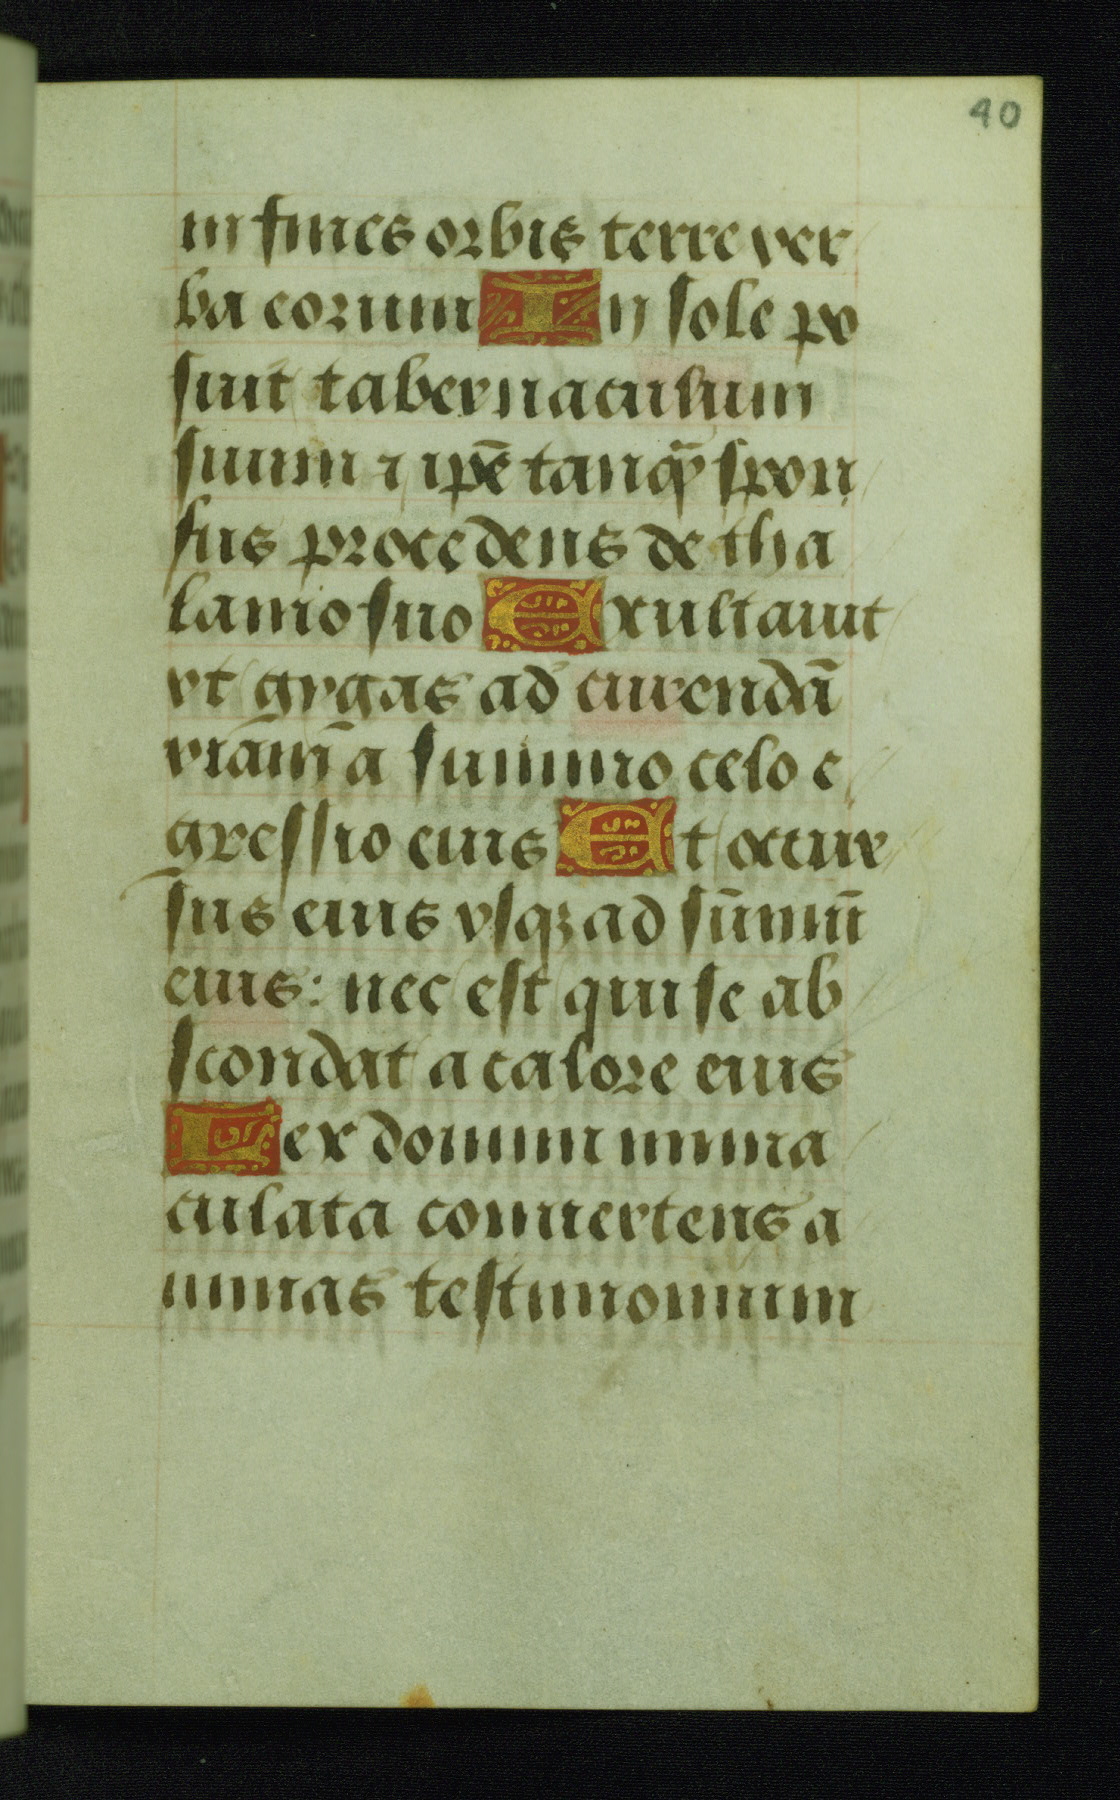 40
in fines orbis terre ver
ba eorum In sole po
suit tabernaculum
suum ⁊ ip̄e tanq̄ spon
sus procedens de tha
lamo suo Exultauit
vt gygas ad currendā
viam a summo celo e
gressio eius Et occur
sus eius vsqꝫ ad sūmū
eius: nec est qui se ab
scondat a calore eius
Lex domini imma
culata conuertens a
nimas testimonium